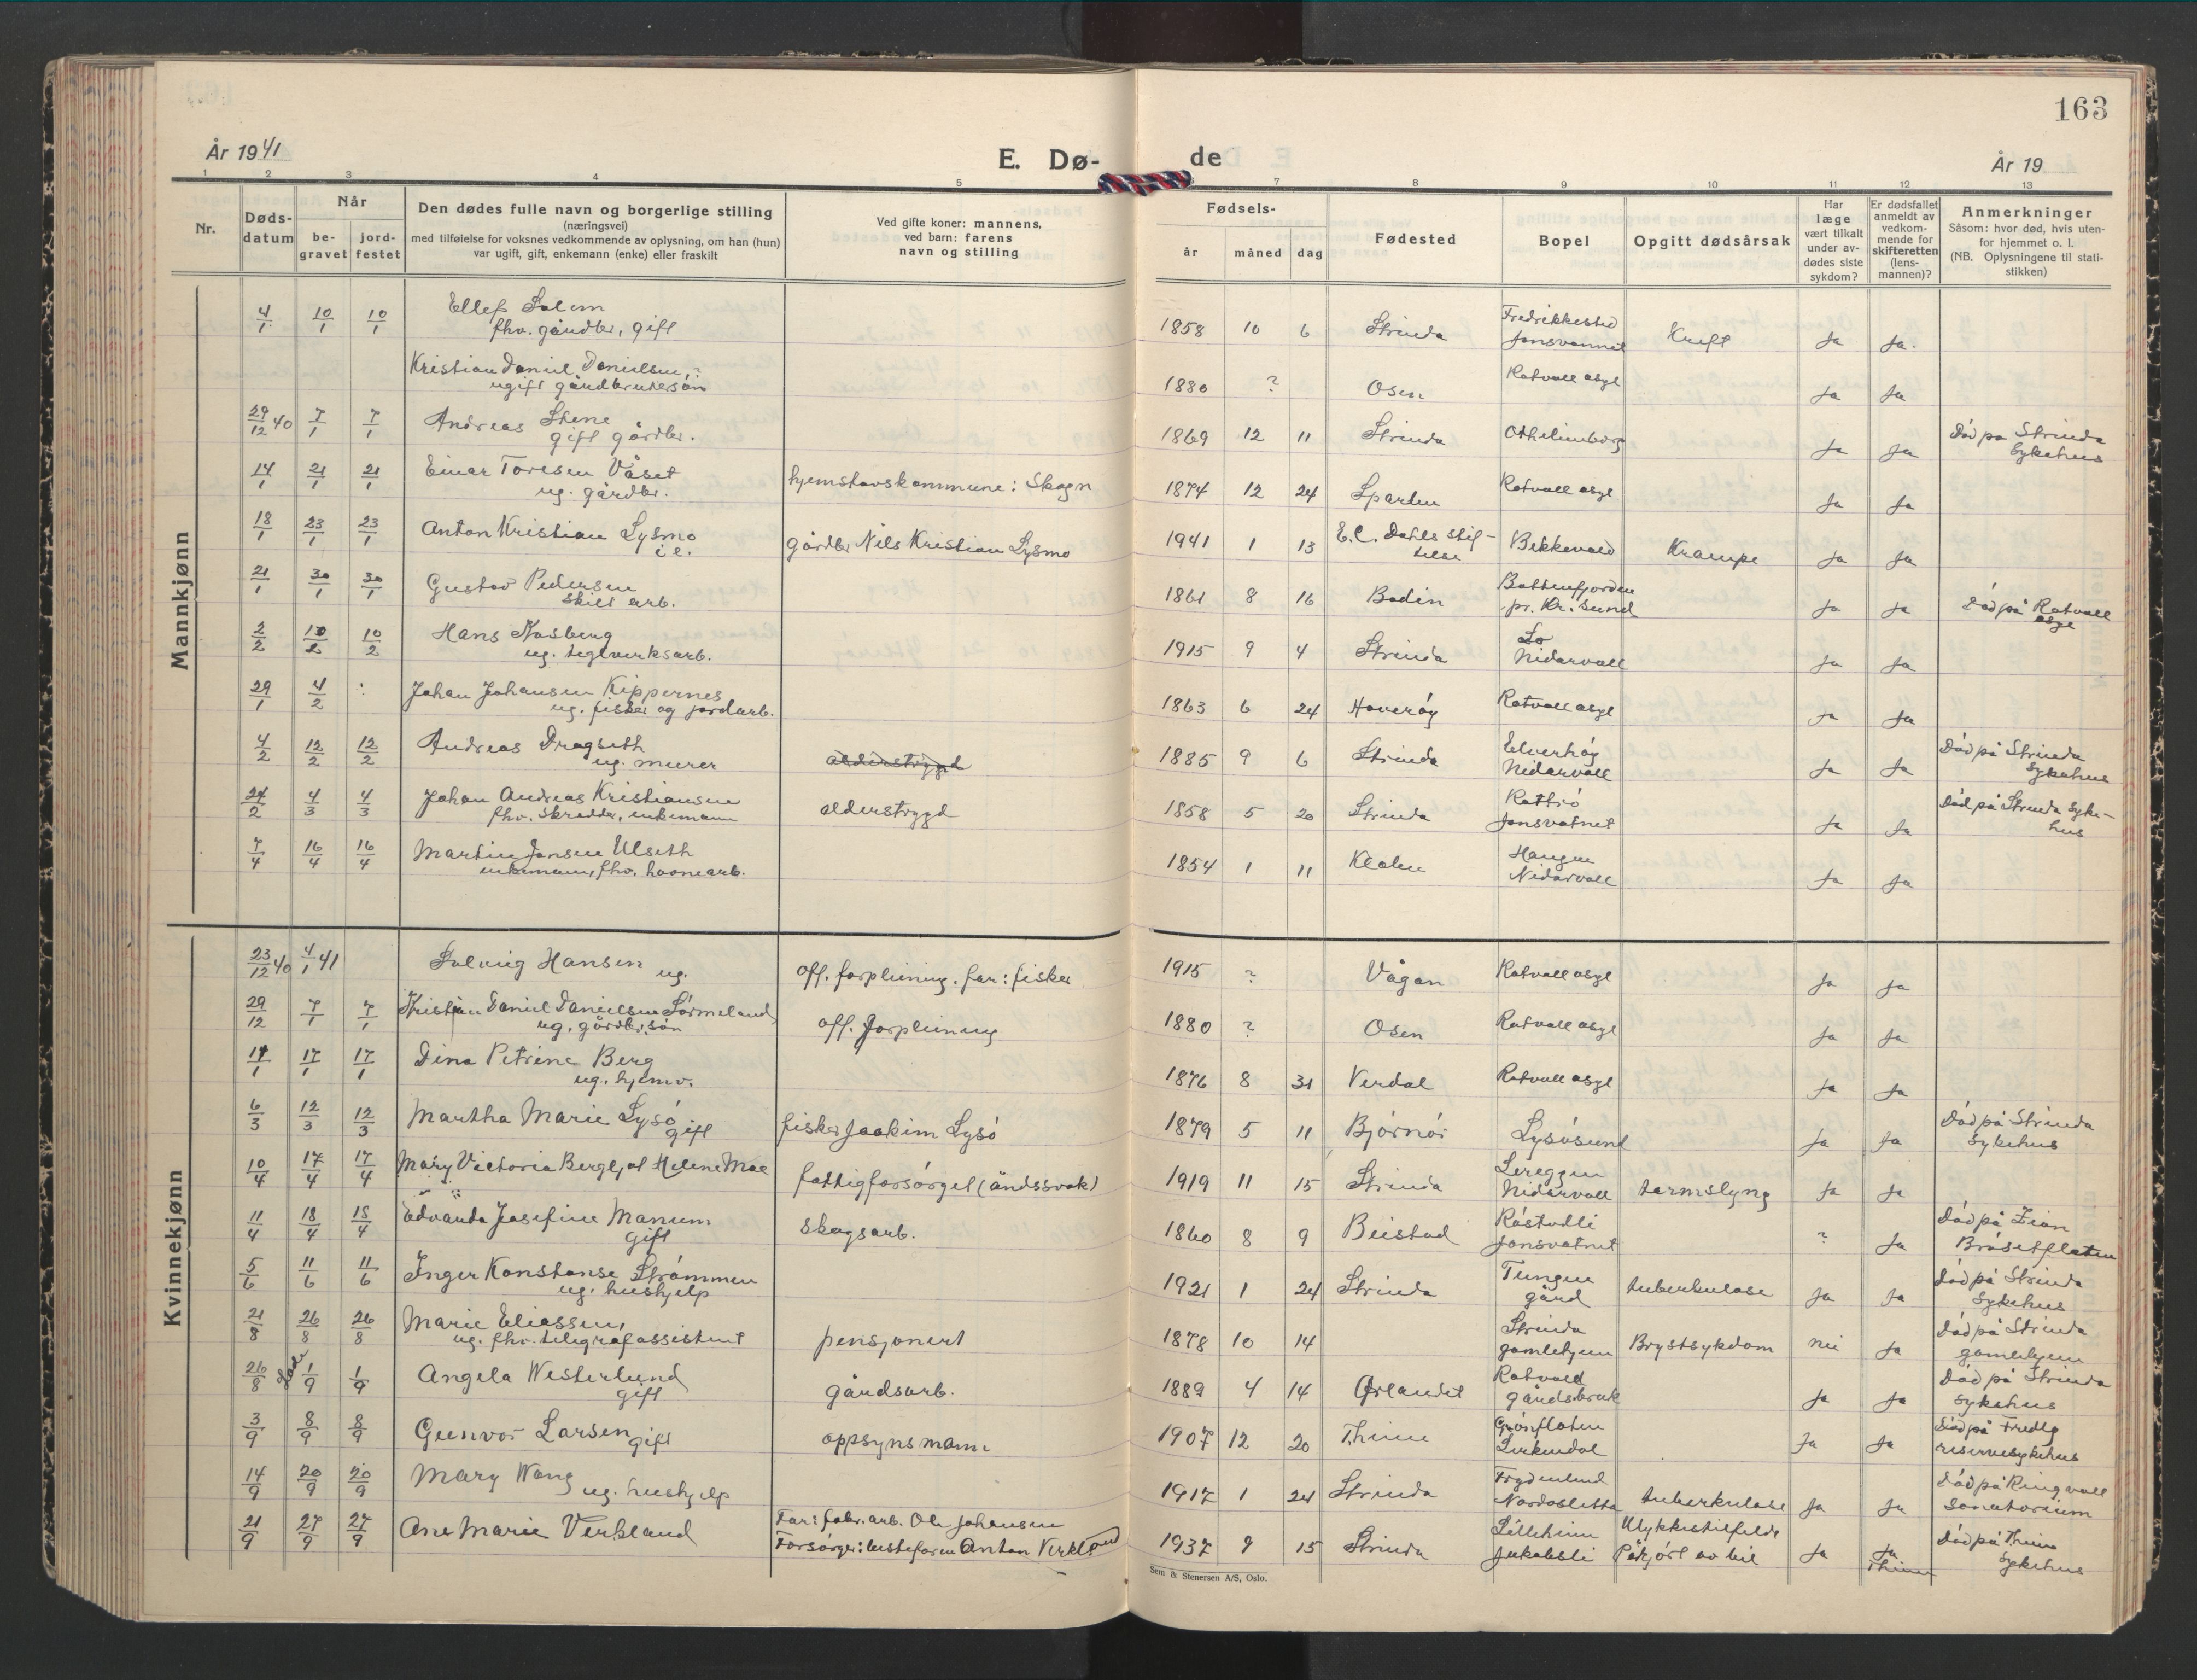 163
År 1941
E. Dø-
de
År 19
1 2 3 4 5 7 8 9 10 11 12 13
Nr.
Døds-
datum
Når
be-
gravet
jord-
festet
Den dødes fulle navn og borgerlige stilling
(næringsvei)
med tilføielse for voksnes vedkommende av oplysning, om han (hun)
var ugift, gift, enkemann (enke) eller fraskilt
Ved gifte koner: mannens,
ved barn: farens
navn og stilling
Fødsels-
år måned dag
Fødested
Bopel
Opgitt dødsårsak
Har
læge
vært tilkalt
under av-
dødes siste
sykdom?
Er dødsfallet
anmeldt av
vedkom-
mende for
skifteretten
(lens-
mannen)?
Anmerkninger
Såsom: hvor død, hvis uten-
for hjemmet o. l.
(NB. Oplysningene til stati-
stikken)
Mannkjønn
4/1 10/1 10/1 Ellef Solem
fhv. gårdbr., gift
1858 10 6 Strinda Fredrikkested
Jonsvannet Kreft Ja Ja.
Kristian Daniel Danielsen, ?
ugift gårdbrukersøn
1880 ? Osen Rotvoll asyl Ja Ja
29/12 40 7/1 7/1 Andreas Stene
gift gårdbr.
1869 12 11 Strinda Othelienborg Ja Ja Død på Strinda
Sykehus
14/1 21/1 21/1 Einar Toresen Våset
ug. gårdbr.
hjemstavskommune: Skogn 1874 12 24 Sparbu Rotvoll asyl Ja Ja
18/1 23/1 23/1 Anton Kristian Lysmo
i e.
gårdbr Nils Kristian Lysmo 1941 1 13 E. C. Dahls stif-
telse Bekkevold Krampe Ja Ja
21/1 30/1 30/1 Gustav Pedersen
skilt arb.
1861 8 16 Bodin Battenfjorden
pr. Kr.sund Ja Ja Død på Rotvoll
asyl
2/2 10/2 10/2 Hans Kosberg
ug. teglverksarb.
1915 9 4 Strinda Lo
Nidarvoll Ja Ja
29/1 4/2 Johan Johansen Kippernes
ug. fisker og jordarb.
1863 6 24 Haverøy Rotvoll asyl Ja Ja
4/2 12/2 12/2 Andreas Dragseth
ug. murer
alderstrygd 1885 9 6 Strinda Elverhøy
Nidarvoll Ja Ja Død på Strinda
Sykehus
24/2 4/3 4/3 Johan Andreas Kristiansen
fhv. skredder, enkemann
alderstrygd 1858 5 20 Strinda
Jonsvatnet Ja Ja Død på Strinda syke-
hus
7/4 16/4 16/4 Martin Jonsen Ulseth
enkemann, fhv. havnearb.
1854 1 11 Klæbu Haugen
Nidarvoll Ja Ja
Kvinnekjønn
23/12 40 4/1 41 Solveig Hansen ug.
off. forpleining. far: fisker 1915 ? Vågan Rotvoll asyl Ja Ja
29/12 7/1 7/1 Kristian Daniel Danielsen Sørmeland
ug. gårdbr.søn
off. forpleining 1880 ? Osen Rotvoll asyl Ja Ja
14/1 17/1 17/1 Dina Petrine Berg
ug. hjemv.
1876 8 31 Verdal Rotvoll asyl Ja Ja
6/3 12/3 12/3 Martha Marie Lysø
gift
fisker Joakim Lysø 1879 5 11 Bjørnør Lysøsund Ja Ja Død på Strinda
Sykehus
10/4 17/4 17/4 Mary Victoria Bergljot Helene Moe
fattigforsørget (åndssvak) 1919 11 15 Strinda Lereggen
Nidarvoll tarmslyng Ja Ja
11/4 18/4 18/4 Edvarda Josefine Manum
gift
skogsarb. 1860 8 9 Beistad Råstadli
Jonsvatnet ? Ja Død på Zion
Brøsetflaten
5/6 11/6 11/6 Inger Konstanse Strømmen
ug. hushjelp
1921 1 24 Strinda Tungen
gård tuberkulose Ja Ja Død på Strinda
Sykehus
21/8 26/8 26/8 Marie Eliassen,
ug. fhv. telegrafassistent
pensjonert 1878 10 14 Strinda
gamlehjem Brystsykdom nei Ja Død på Strinda
gamlehjem
26/8 1/9 1/9 Angela Westerlund
gift
gårdsarb. 1889 4 14 Ørlandet Rotvoll
gårdsbruk Ja Ja Død på Strinda
sykehus
3/9 8/9 8/9 Gunvor Larsen gift
oppsynsmann 1907 12 20 Thjem Grønflaten
Lerkendal Ja Ja Død på Fredly
reservesykehus
14/9 20/9 20/9 Mary Wang
ug. hushjelp
1917 1 24 Strinda Frydenlund
Nardosletta tuberkulose Ja Ja Død på Ringvall
Sanatorium
21/9 27/9 27/9 Ane Marie Verkland
Far: fabr. arb. Ole Johansen
Forsørger: bestefaren Anton Verkland
1937 9 15 Strinda Lilleheim
Jakobsli Ulykkestilfelde
Påkjørt av bil Ja Ja
Thjem Død på Thjems
sykehus
Sem & Stenersen A/S, Oslo.